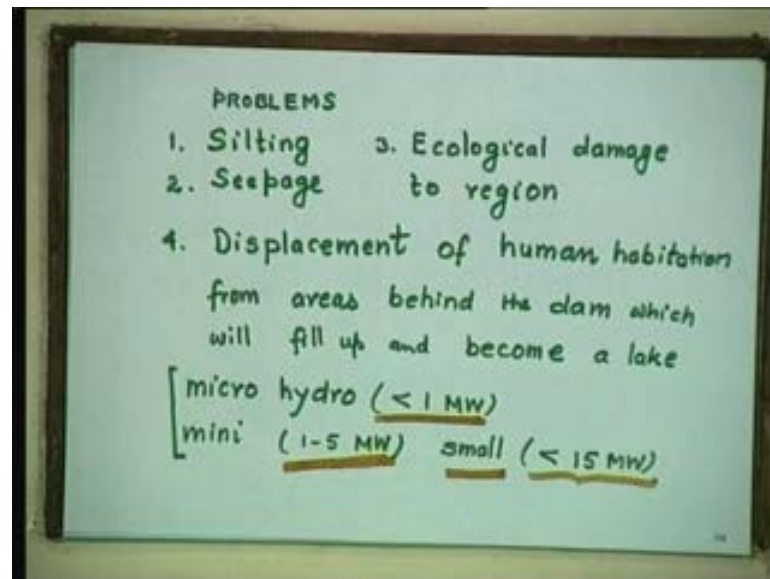 PROBLEMS
1. Silting 3. Ecological damage
2. Seepage to region
4. Displacement of human habitation
from areas behind the dam which
will fill up and become a lake
micro hydro (< 1 MW)
mini (1-5 MW) small (< 15 MW)